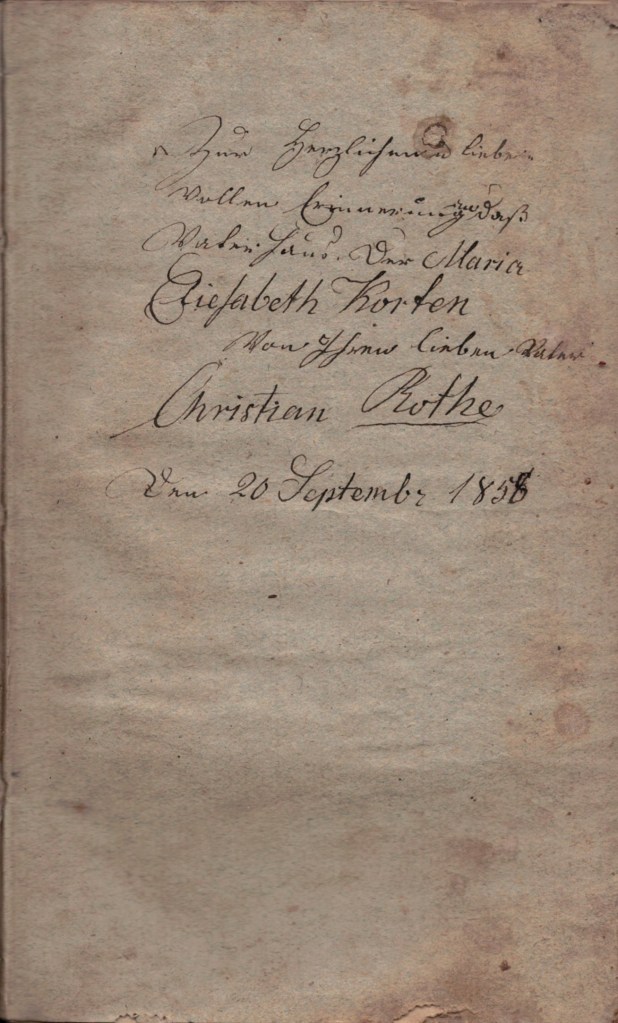 Zur Herzlichen u liebe
vollen Erinnerung an daß
Vater Haus. Der Maria
Eliesabeth Korten
Von Ihren lieben Vater
Christian Rothe
Den 20 Septembr 1856